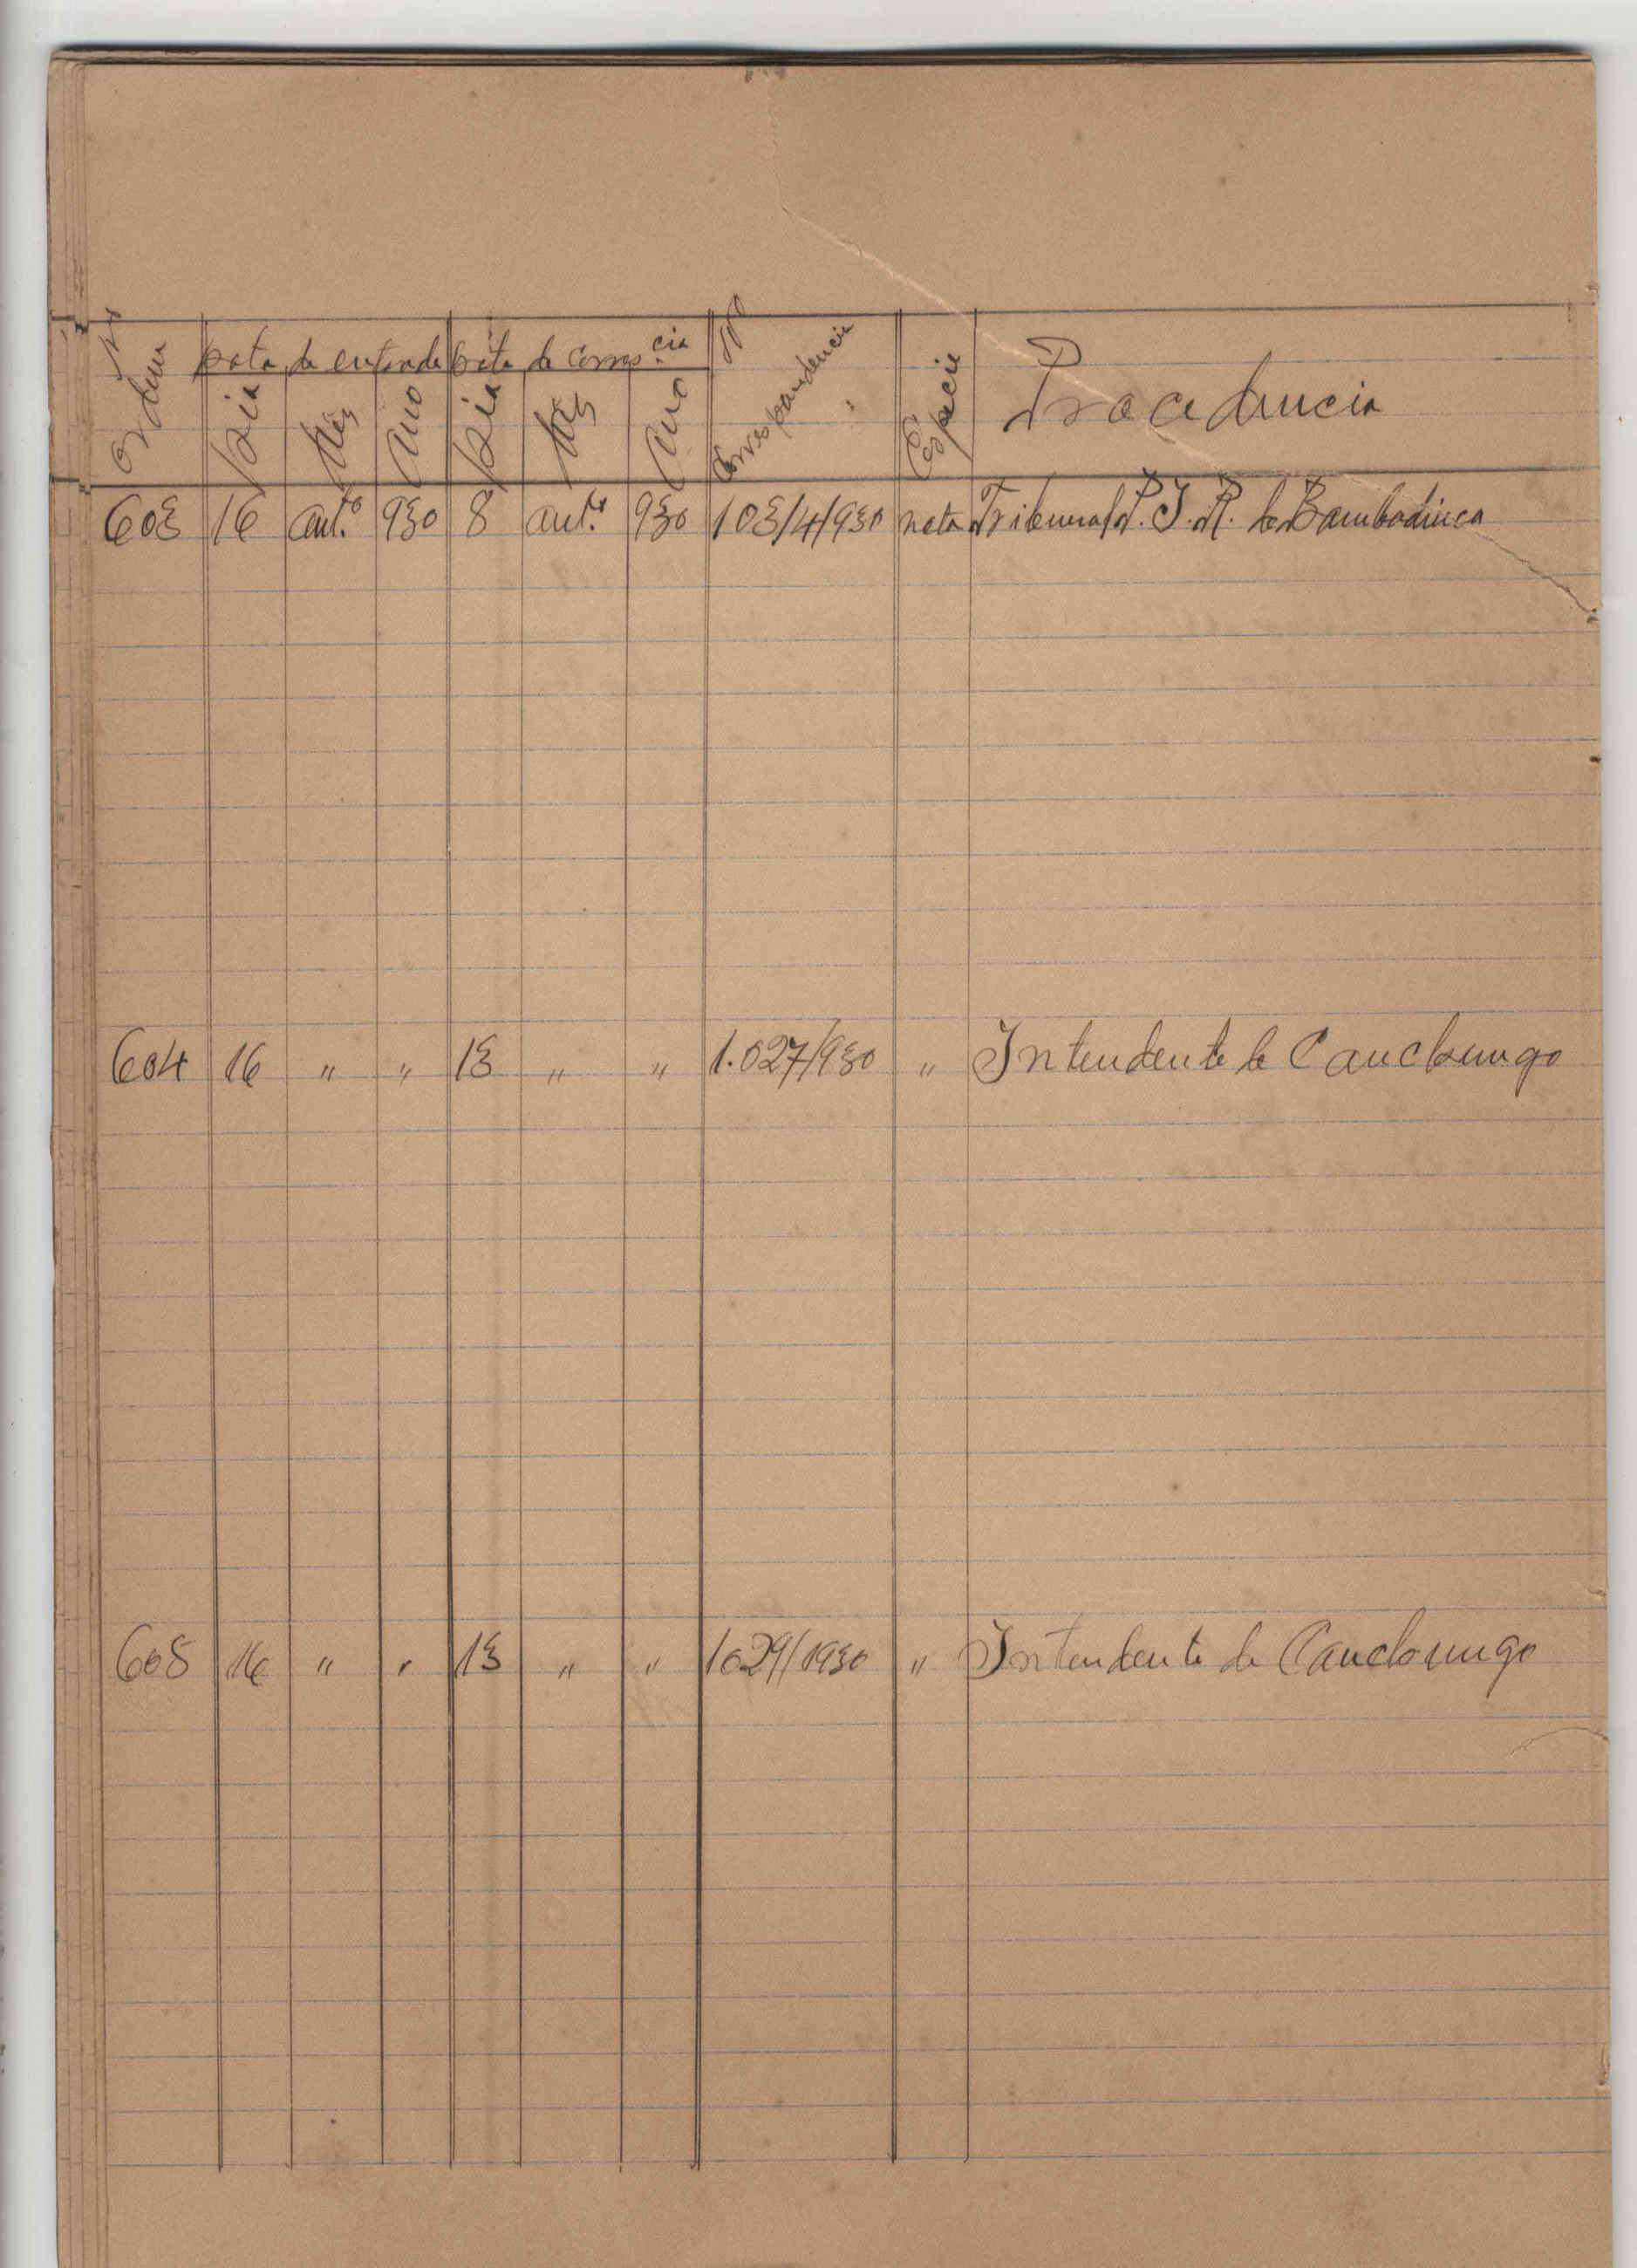 Nº Ordem Data de entrada Data de corres.cia Nº Correspondencia Especie Procedencia
Dia Mês Ano Dia Mês Ano
603 16 out.º 930 8 out.º 930 103/4/930 nota Tribunal P. I. R. de Bambadinca
604 16 " " 13 " " 1.027/930 " Intendente de Canchungo
605 16 " " 13 " " 1029/1930 " Intendente de Canchungo